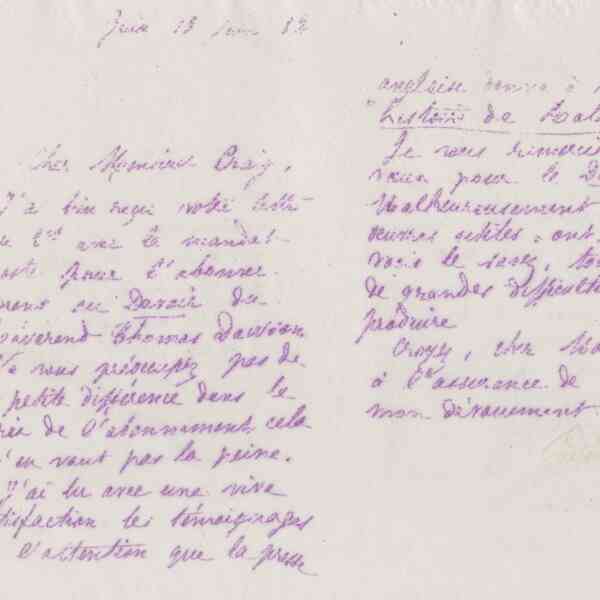 13 juin 82
Cher Monsieur Craig,
J'ai bien reçu votre lettre
1er avec le mandat
poste pour l'abonne-
au Devoir du
Révérend Thomas Dawson
Ne vous préoccupez pas de
petite différence dans le
prix de l'abonnement cela
n'en vaut pas la peine.
J'ai lu avec une vive
satisfaction les témoignages
l'attention que la presse
anglaise donne à
"histoire de
Je vous
pour le
Malheureusement
œuvres utiles, ont
le sang,
de grandes difficulté
produire
Croyez, cher
à l'assurance de
mon dévouement